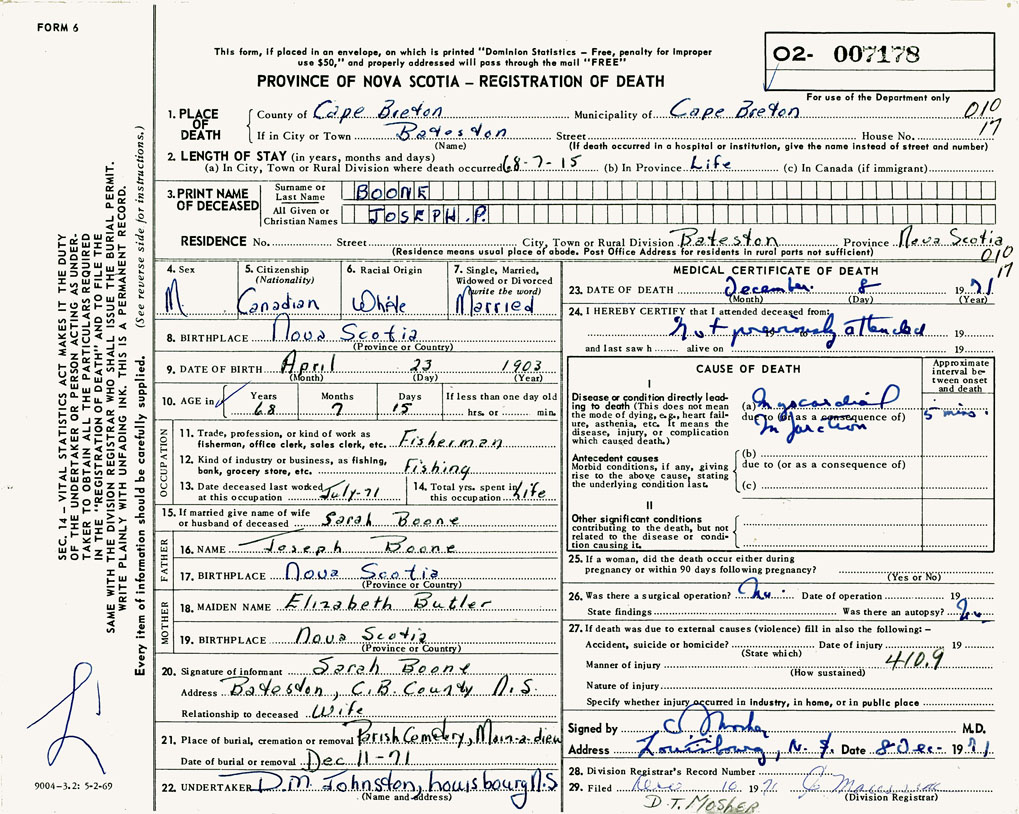 FORM 6
This form, if placed in an envelope, on which is printed "Dominion Statistics – Free, penalty for improper
use $50," and properly addressed will pass through the mail "FREE"
PROVINCE OF NOVA SCOTIA – REGISTRATION OF DEATH
02- 007178
For use of the Department only
010
17
1. PLACE OF DEATH
County of Cape Breton Municipality of Cape Breton
If in City or Town Bateston Street House No.
(Name) (If death occurred in a hospital or institution, give the name instead of street and number)
2. LENGTH OF STAY (in years, months and days)
(a) In City, Town or Rural Division where death occurred 68-7-15 (b) In Province Life (c) In Canada (if immigrant)
3. PRINT NAME OF DECEASED
Surname or Last Name BOONE
All Given or Christian Names JOSEPH.P.
RESIDENCE No. Street City, Town or Rural Division Bateston Province Nova Scotia
(Residence means usual place of abode. Post Office Address for residents in rural parts not sufficient)
010
17
4. Sex M.
5. Citizenship (Nationality) Canadian
6. Racial Origin White
7. Single, Married, Widowed or Divorced (write the word) Married
8. BIRTHPLACE Nova Scotia
(Province or Country)
9. DATE OF BIRTH April 23 1903
(Month) (Day) (Year)
10. AGE in Years 68 Months 7 Days 15 If less than one day old hrs. or min.
OCCUPATION
11. Trade, profession, or kind of work as fisherman, office clerk, sales clerk, etc. Fisherman
12. Kind of industry or business, as fishing, bank, grocery store, etc. Fishing
13. Date deceased last worked at this occupation July-71
14. Total yrs. spent in this occupation Life
15. If married give name of wife or husband of deceased Sarah Boone
FATHER
16. NAME Joseph Boone
17. BIRTHPLACE Nova Scotia
(Province or Country)
MOTHER
18. MAIDEN NAME Elizabeth Butler
19. BIRTHPLACE Nova Scotia
(Province or Country)
20. Signature of informant Sarah Boone
Address Bateston, C.B. County N.S.
Relationship to deceased Wife
21. Place of burial, cremation or removal Parish Cemetery, Main-a-dieu
Date of burial or removal Dec 11-71
22. UNDERTAKER D.M. Johnston, Louisbourg N.S
(Name and address)
MEDICAL CERTIFICATE OF DEATH
23. DATE OF DEATH December 8 1971
(Month) (Day) (Year)
24. I HEREBY CERTIFY that I attended deceased from:
Not previously attended 19
and last saw h alive on 19
CAUSE OF DEATH
Approximate interval between onset and death
I
Disease or condition directly leading to death (This does not mean the mode of dying, e.g., heart failure, asthenia, etc. It means the disease, injury, or complication which caused death.)
(a) Myocardial
due to (or as a consequence of)
Infarction
5 mins.
Antecedent causes
Morbid conditions, if any, giving rise to the above cause, stating the underlying condition last.
(b)
due to (or as a consequence of)
(c)
II
Other significant conditions contributing to the death, but not related to the disease or condition causing it.
25. If a woman, did the death occur either during
pregnancy or within 90 days following pregnancy?
(Yes or No)
26. Was there a surgical operation? No. Date of operation 19
State findings Was there an autopsy? No
27. If death was due to external causes (violence) fill in also the following:–
Accident, suicide or homicide? Date of injury 19
(State which)
Manner of injury 410.9
(How sustained)
Nature of injury
Specify whether injury occurred in industry, in home, or in public place
Signed by C. Mosher M.D.
Address Louisbourg, N.S. Date 8 Dec- 1971
28. Division Registrar's Record Number
29. Filed 10 1971
(Division Registrar)
D.T. MOSHER
SEC. 14 – VITAL STATISTICS ACT MAKES IT THE DUTY
OF THE UNDERTAKER OR PERSON ACTING AS UNDER-
TAKER TO OBTAIN ALL THE PARTICULARS REQUIRED
IN THE "REGISTRATION OF DEATH" AND TO FILE THE
SAME WITH THE DIVISION REGISTRAR WHO SHALL ISSUE THE BURIAL PERMIT.
WRITE PLAINLY WITH UNFADING INK. THIS IS A PERMANENT RECORD.
Every item of information should be carefully supplied. (See reverse side for instructions.)
9004-3.2: 5-2-69